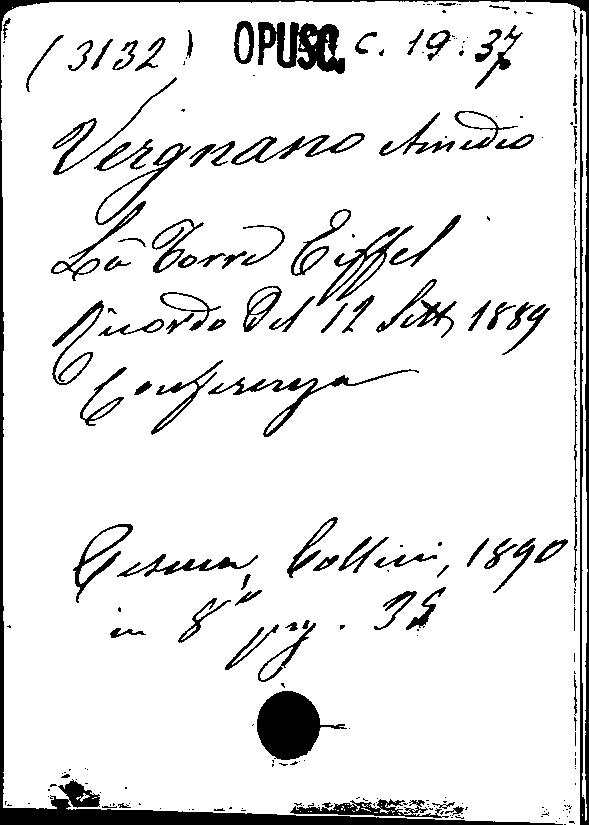 (3132) OPUSC. C. 19. 37
Vergnano Amedio
La Torre Eiffel
Ricordo del 12 Sett, 1889
Conferenza
Cesena, Collini, 1890
in 8° pag.